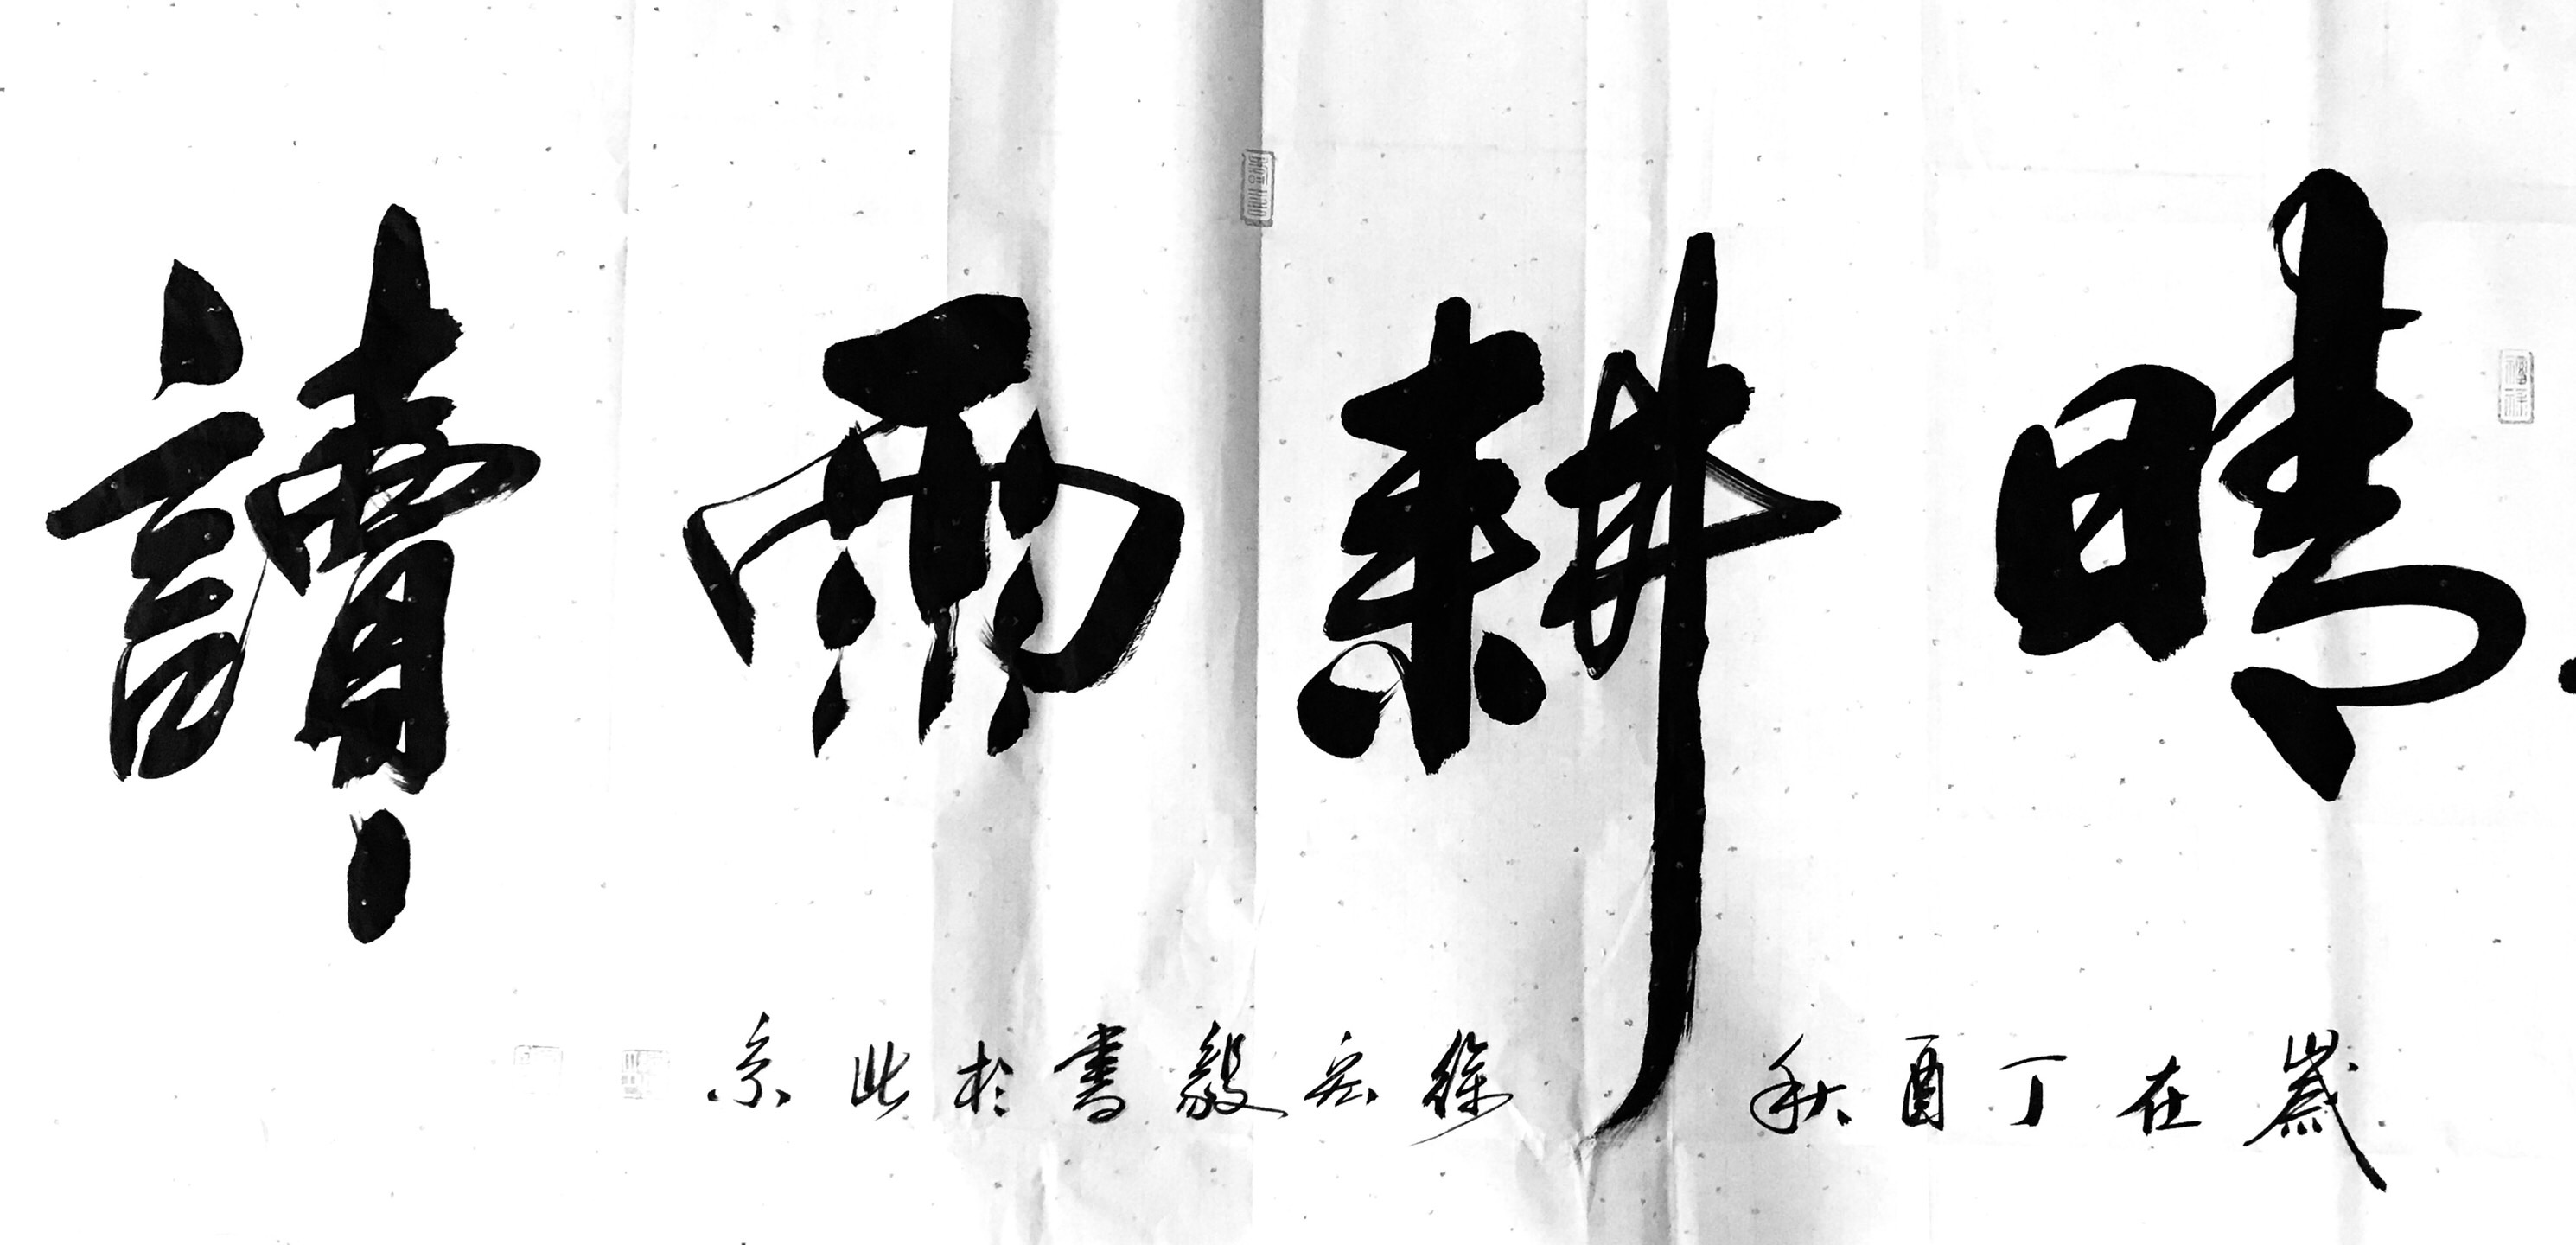 晴耕雨讀
歲在丁酉秋 徐宏毅書於北京